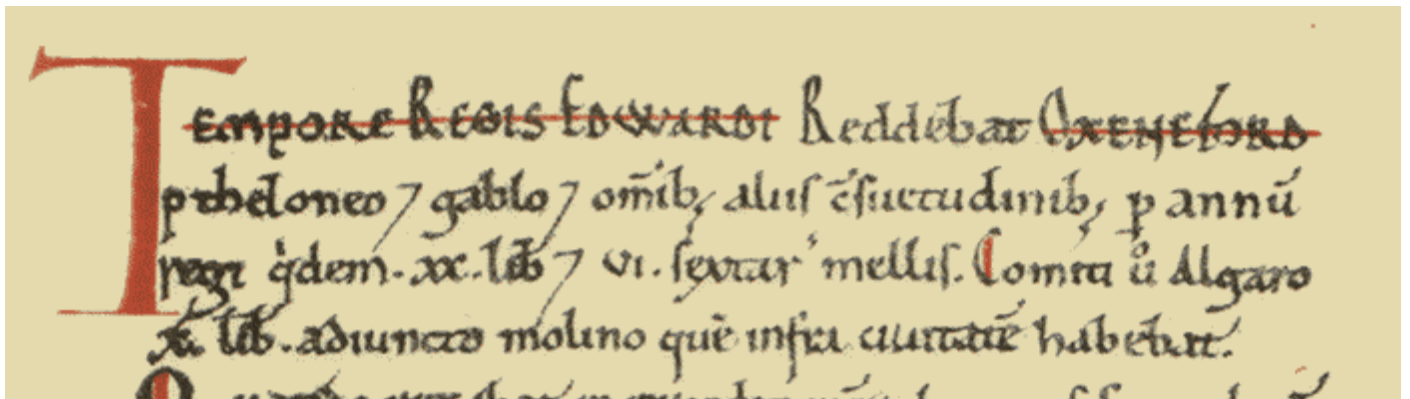 TEMPORE REGIS EDWARDI Reddebat OXENEFORD
p theloneo ⁊ gablo ⁊ om̄ib; aliis c̄suetudinib; p annū
regi q̇dem. xx. lib̄ ⁊ vi. sextar' mellis. Comiti ů Algaro
x. lib̄. adiuncto molino quē infra ciuitatē habebat.